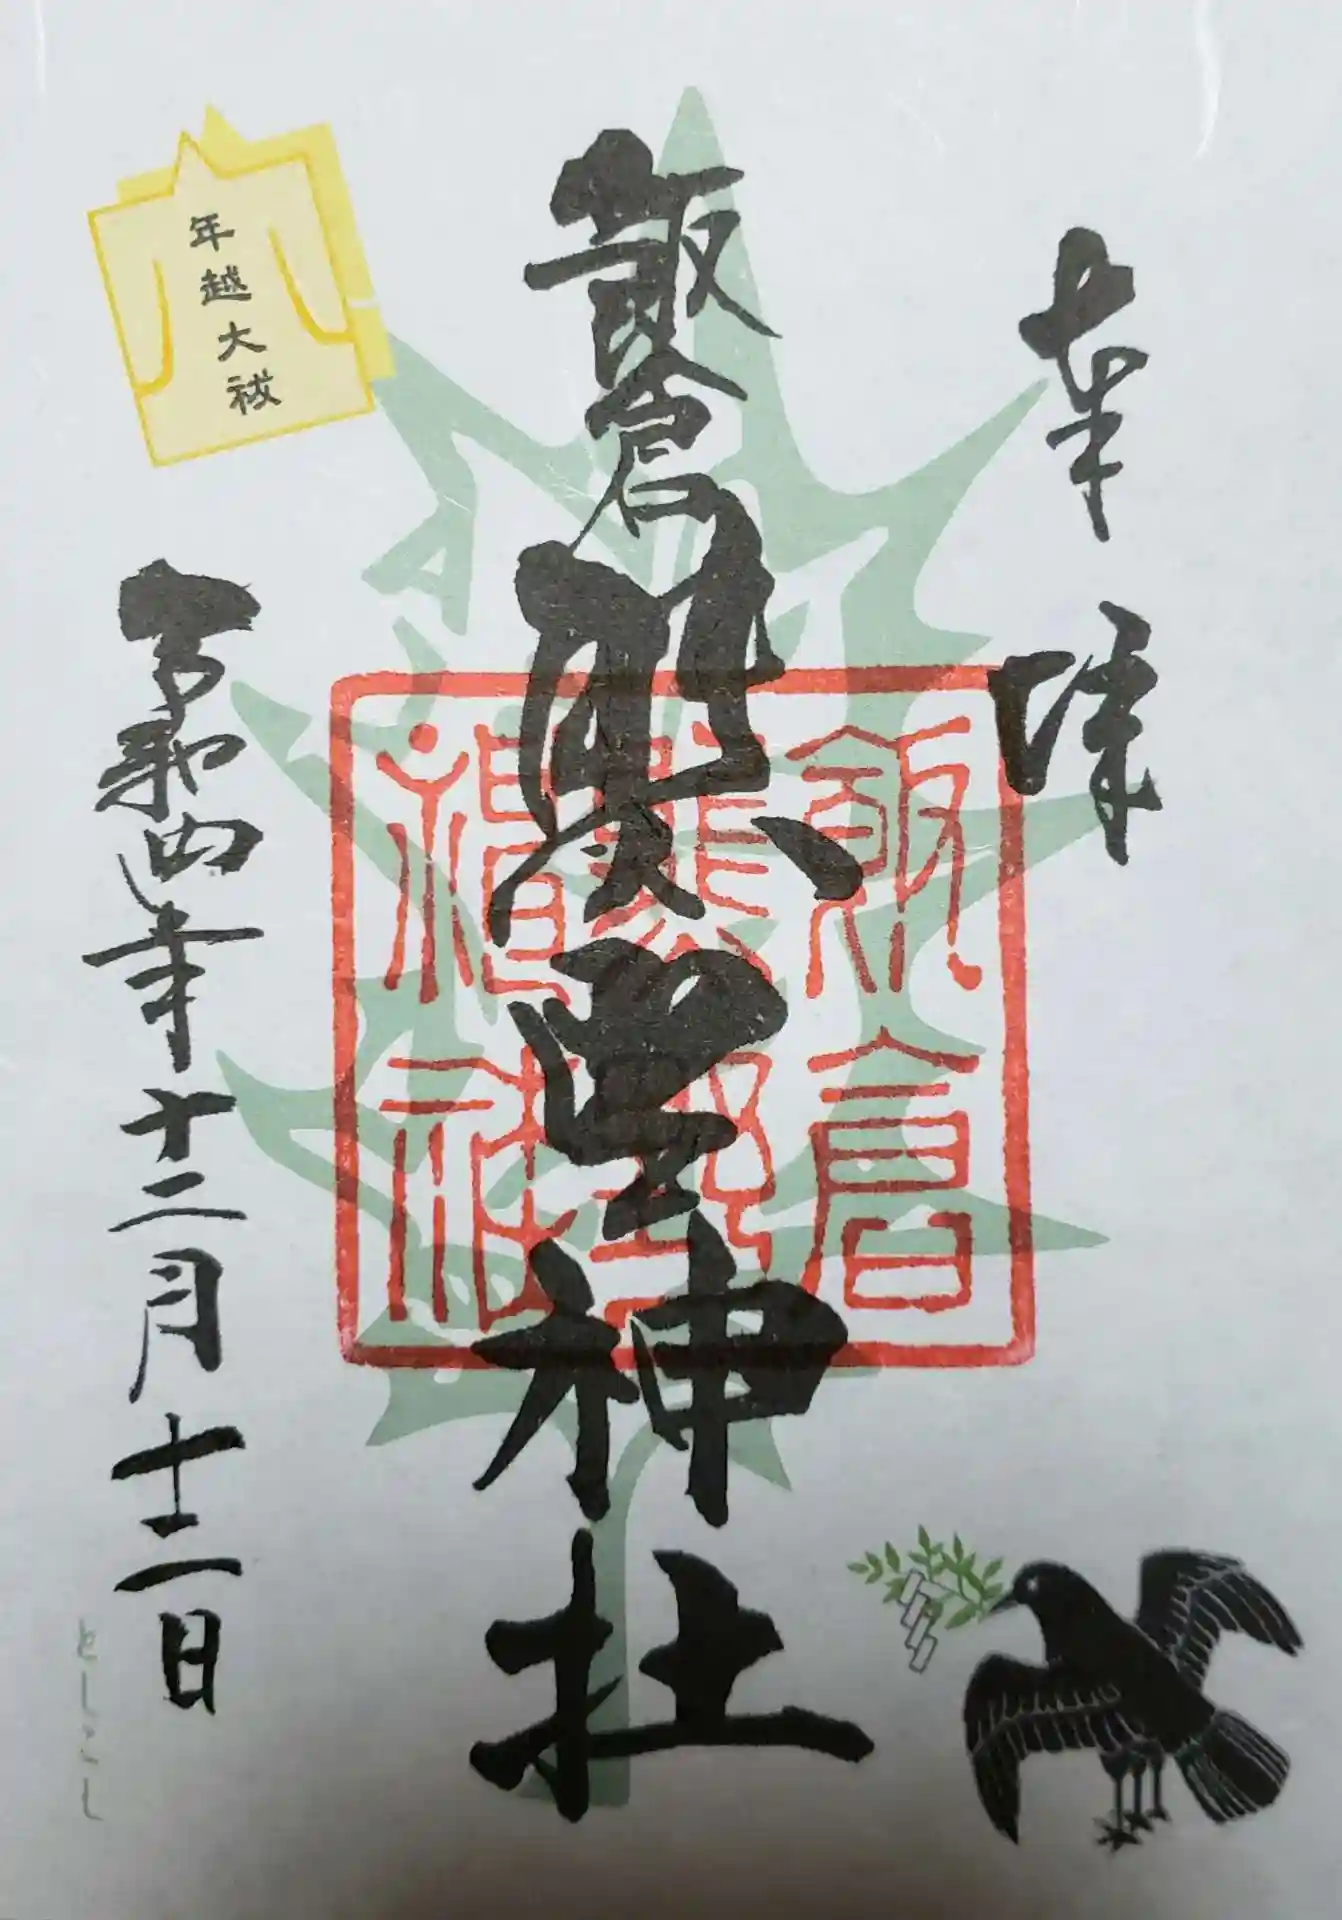 奉拝
飯倉
熊野神社
飯倉
熊野
神社
年越大祓
令和四年十二月十二日
としこし